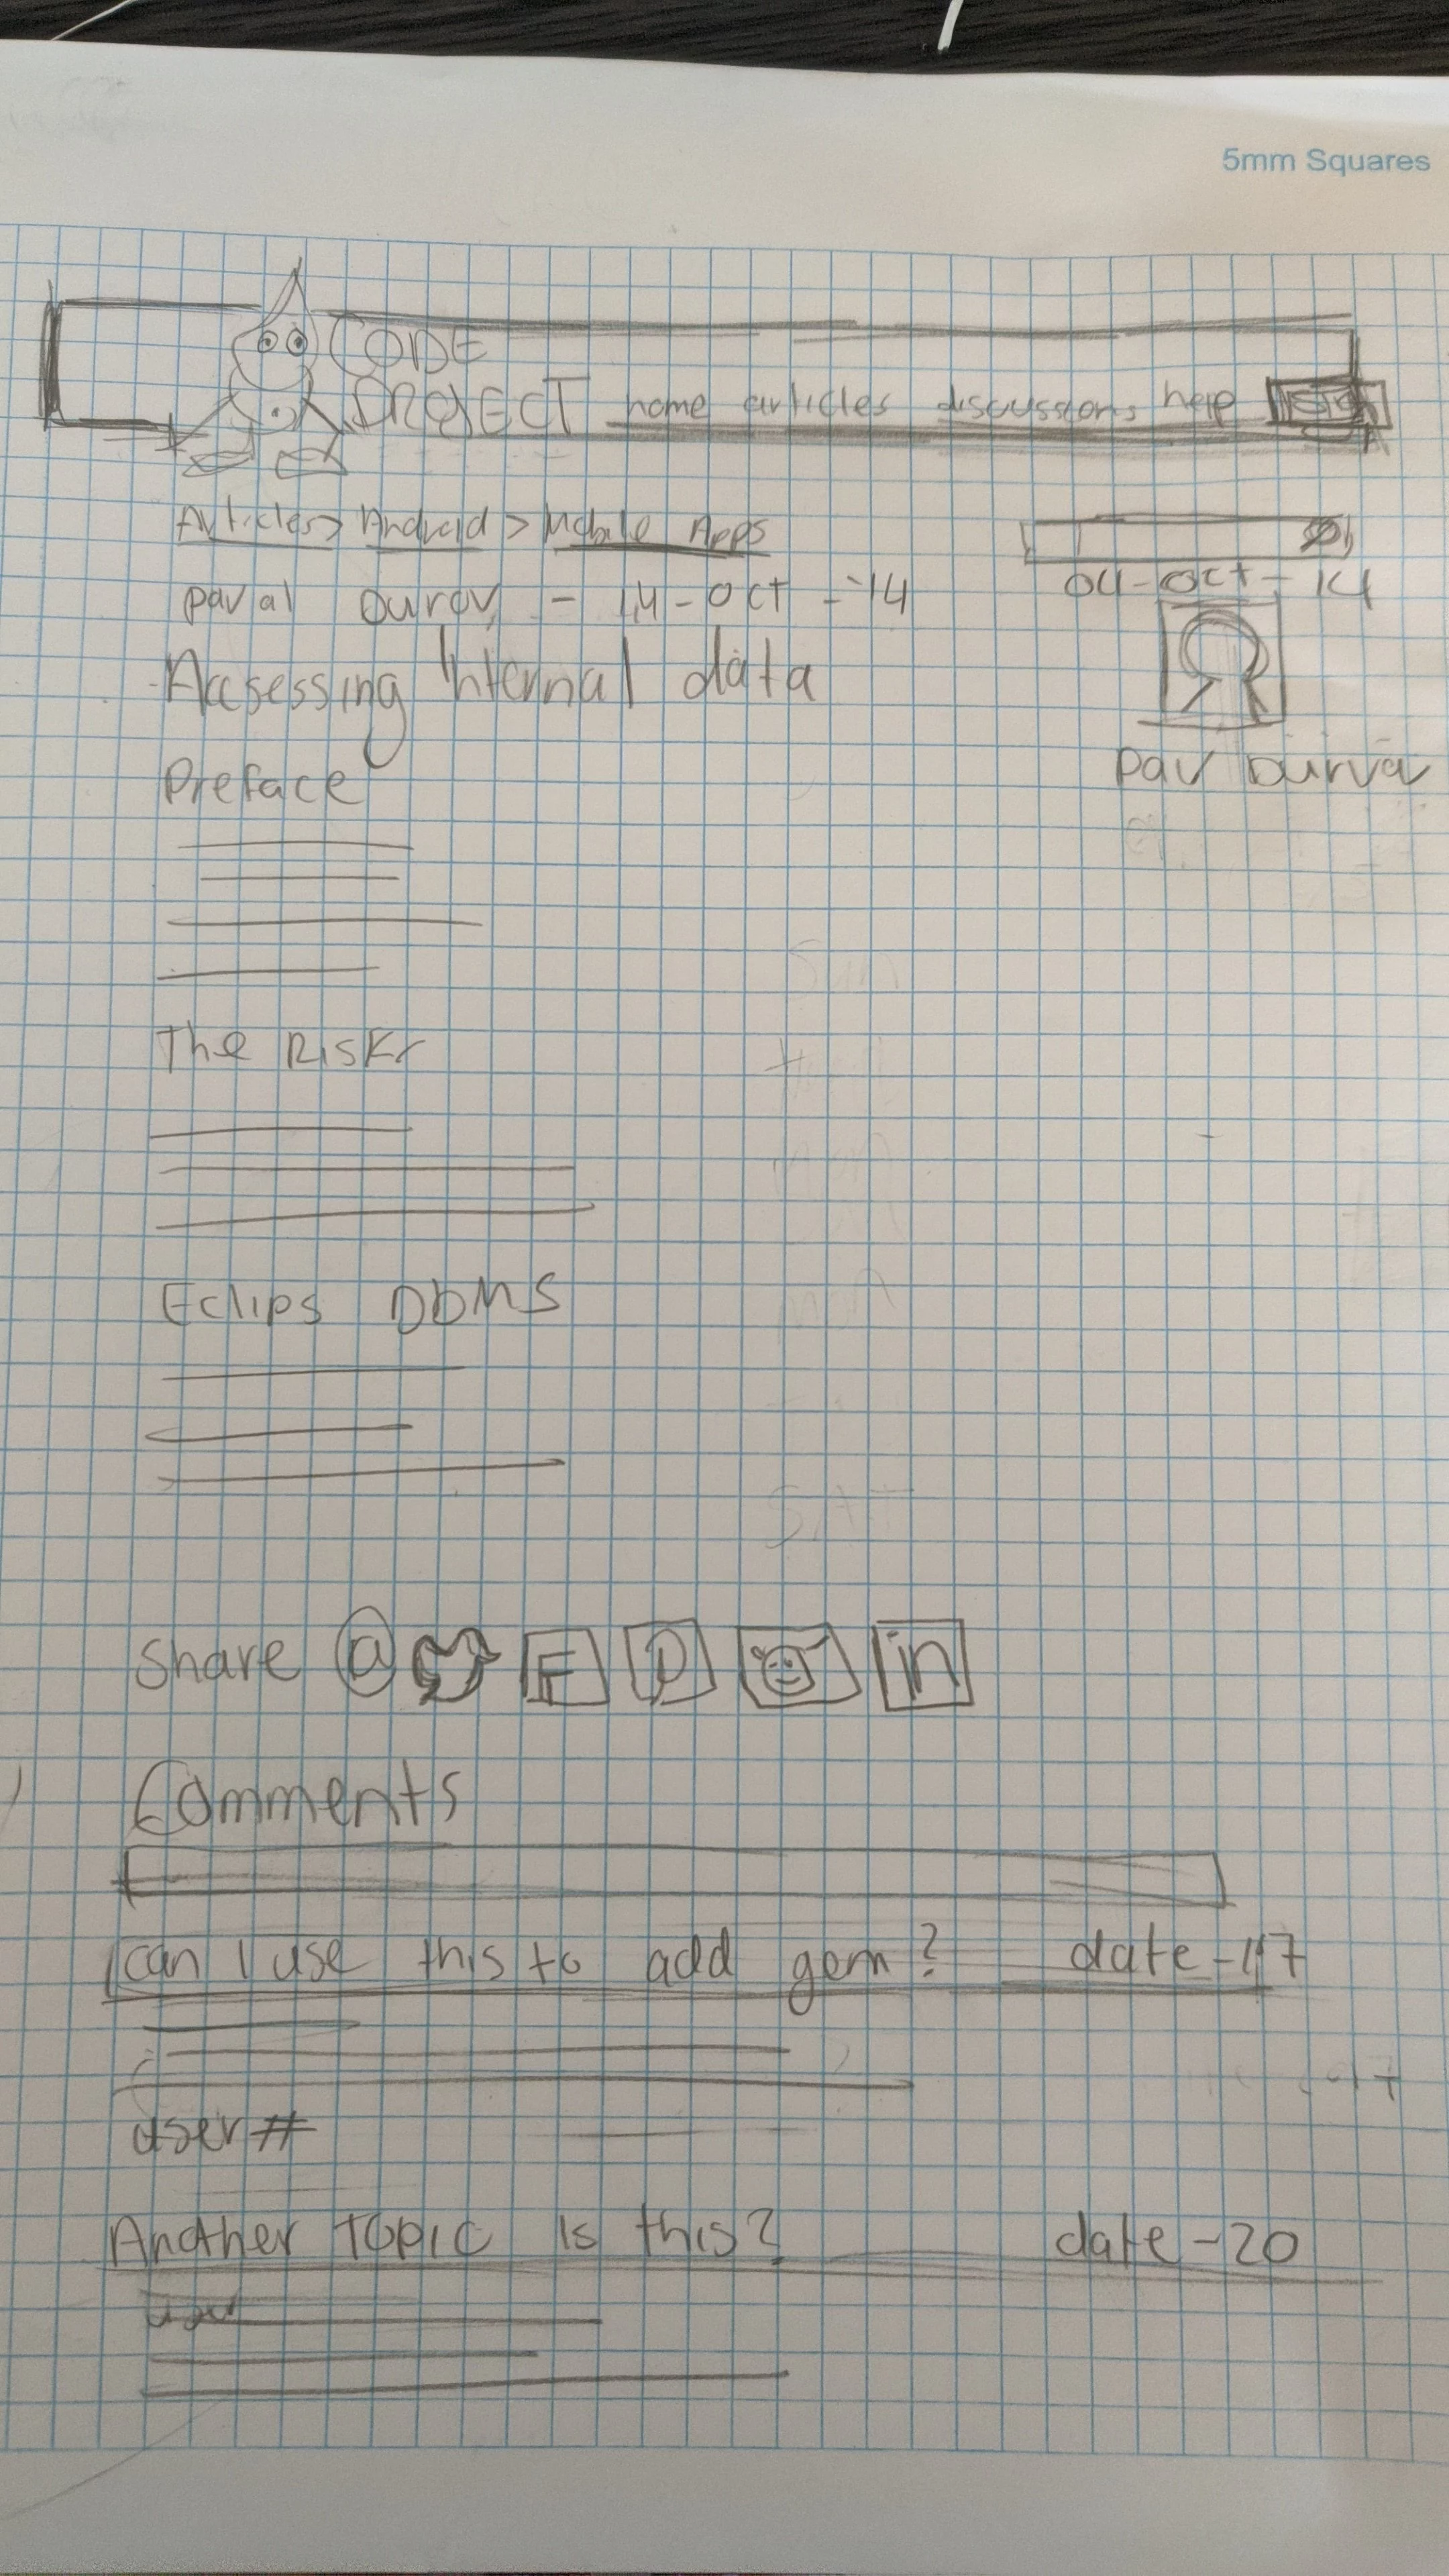 5mm Squares
CODE
PROJECT home articles discussions help
Articles > Android > Mobile Apps
paval - 14-oct-14
04-oct-14
Accsessing Internal data
pav
Preface
The Risks
Eclips DbMS
Share @ F P in
Comments
can I use this to add gem? date-17
user#
Another Topic Is this? date-20
user